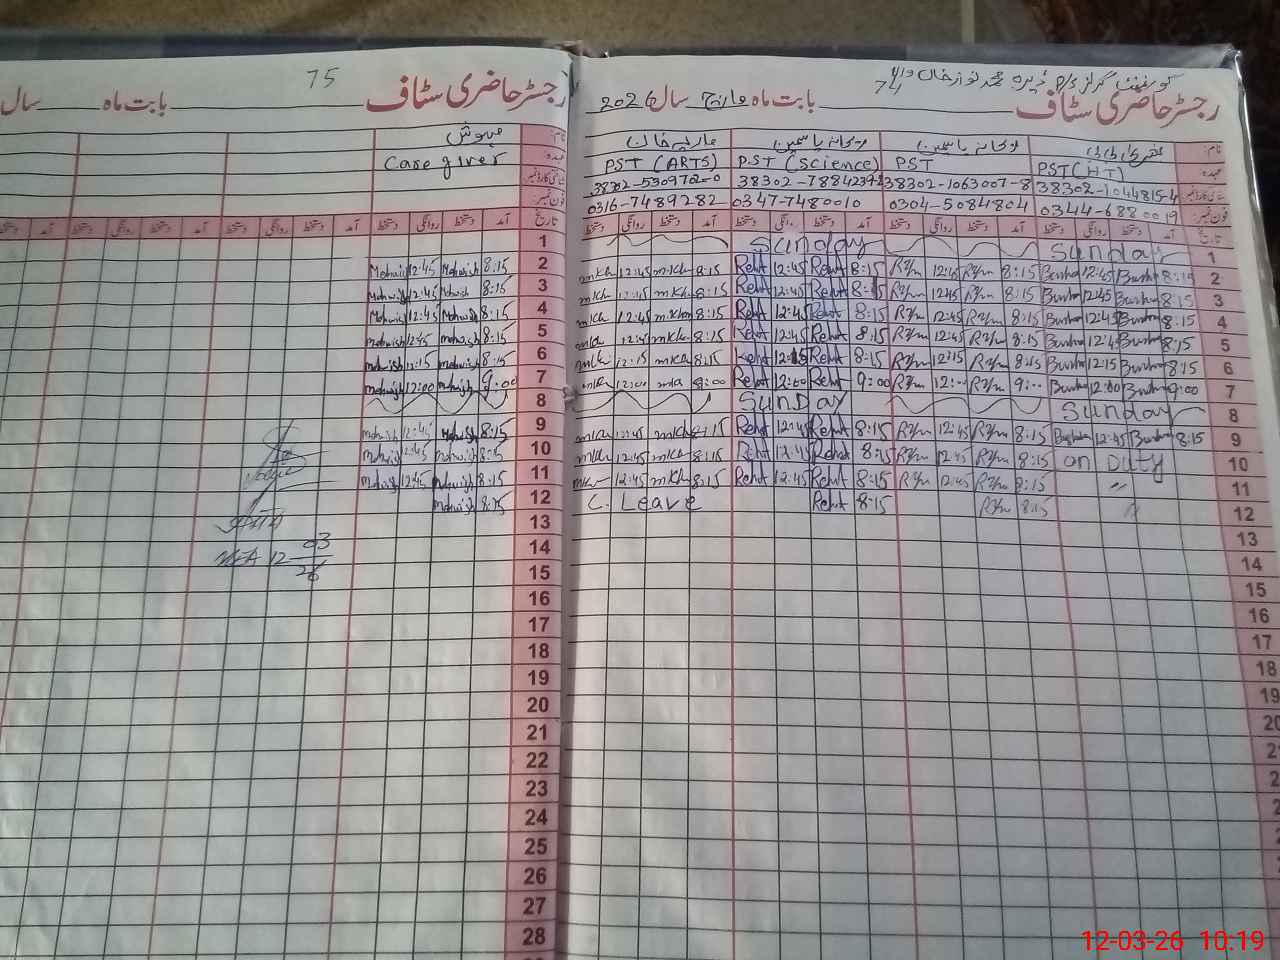 75
رجسٹر حاضری سٹاف بابت ماہ سال
نام: مہوش
عہدہ Caregiver
شناختی کارڈ نمبر
فون نمبر:
تاریخ آمد دستخط روانگی دستخط آمد دستخط روانگی دستخط آمد دستخط روانگی دستخط
1
2 8:15 Mehwish 12:45 Mehwish
3 8:15 Mehwish 12:45 Mehwish
4 8:15 Mehwish 12:45 Mehwish
5 8:15 Mehwish 12:45 Mehwish
6 8:15 Mehwish 12:15 Mehwish
7 9:00 Mehwish 12:00 Mehwish
8
9 8:15 Mehwish 12:45 Mehwish
10 8:15 Mehwish 12:45 Mehwish
11 8:15 Mehwish 12:45 Mehwish
12 8:15 Mehwish
13
14
15
16
17
18
19
20
21
22
23
24
25
26
27
28
12 03 26
گورنمنٹ گرلز P/S ڈیرہ محمد نواز خان والا
74
رجسٹر حاضری سٹاف بابت ماہ مارچ سال 2026
نام: بشریٰ بی بی ریحانہ یاسمین ریحانہ یاسمین ماریہ خان
عہدہ PST(HT) PST PST (Science) PST (ARTS)
شناختی کارڈ نمبر 38302-1044815-4 38302-1063007-8 38302-7884239-2 38302-5309702-0
فون نمبر: 0344-6880019 0304-5084804 0347-7480010 0316-7489282
تاریخ آمد دستخط روانگی دستخط آمد دستخط روانگی دستخط آمد دستخط روانگی دستخط آمد دستخط روانگی دستخط
1 Sunday Sunday
2 8:15 Bushra 12:45 Bushra 8:15 12:45 8:15 Reht 12:45 Reht 8:15 mkh 12:45 mkh
3 8:15 Bushra 12:45 Bushra 8:15 12:45 8:15 Reht 12:45 Reht 8:15 mkh 12:45 mkh
4 8:15 Bushra 12:45 Bushra 8:15 12:45 8:15 Reht 12:45 Reht 8:15 mkh 12:45 mkh
5 8:15 Bushra 12:45 Bushra 8:15 12:45 8:15 Reht 12:45 Reht 8:15 mkh 12:45 mkh
6 8:15 Bushra 12:15 Bushra 8:15 12:15 8:15 Reht 12:15 Reht 8:15 mkh 12:15 mkh
7 9:00 Bushra 12:00 Bushra 9:00 12:00 9:00 Reht 12:00 Reht 9:00 mkh 12:00 mkh
8 Sunday Sunday
9 8:15 Bushra 12:45 Bushra 8:15 12:45 8:15 Reht 12:45 Reht 8:15 mkh 12:45 mkh
10 on Duty 8:15 12:45 8:15 Reht 12:45 Reht 8:15 mkh 12:45 mkh
11 " 8:15 12:45 8:15 Reht 12:45 Reht 8:15 mkh 12:45 mkh
12 " 8:15 8:15 Reht C. Leave
13
14
15
16
17
18
19
20
12-03-26 10:19